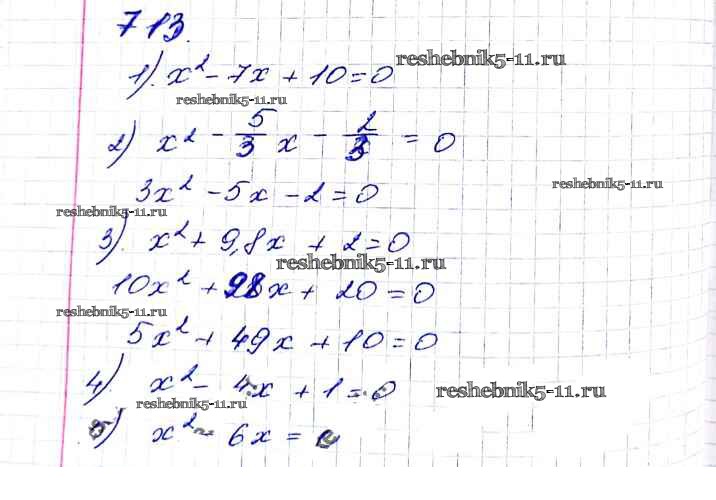 713.
reshebnik5-11.ru
1). x² - 7x + 10 = 0
reshebnik5-11.ru
2) x² - 5/3 x - 2/3 = 0
3x² - 5x - 2 = 0
reshebnik5-11.ru
reshebnik5-11.ru
3). x² + 9,8x + 2 = 0
reshebnik5-11.ru
10x² + 98x + 20 = 0
reshebnik5-11.ru
5x² + 49x + 10 = 0
4). x² - 4x + 1 = 0
reshebnik5-11.ru
reshebnik5-11.ru
5) x² - 6x = 0